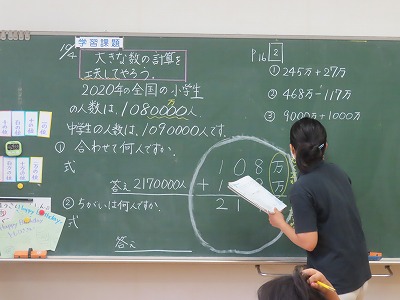 10/4
学習課題
大きな数の計算を
工夫してやろう。
2020年の全国の小学生
の人数は、1080000人、
万
中学生の人数は、1090000人です。
① 合わせて何人ですか。
式
答え 2170000人
② ちがいは何人ですか。
式
答え
108万
+ 1 万
21
P16 2
① 245万+27万
② 468万-117万
③ 9000万+1000万
Happy Birthday